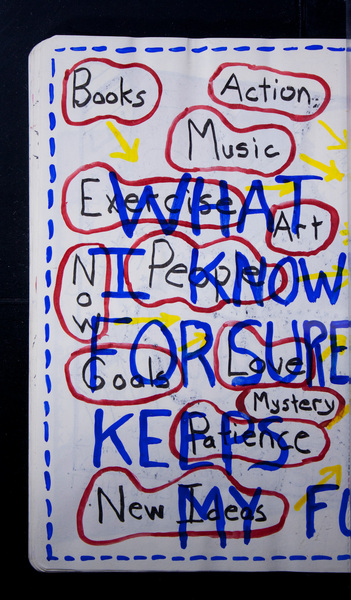 Books
Action
Music
Exercise
WHAT
Art
People
I KNOW
Now
FOR SURE
Love
Goals
Mystery
KEEPS
Patience
New Ideas
MY FU